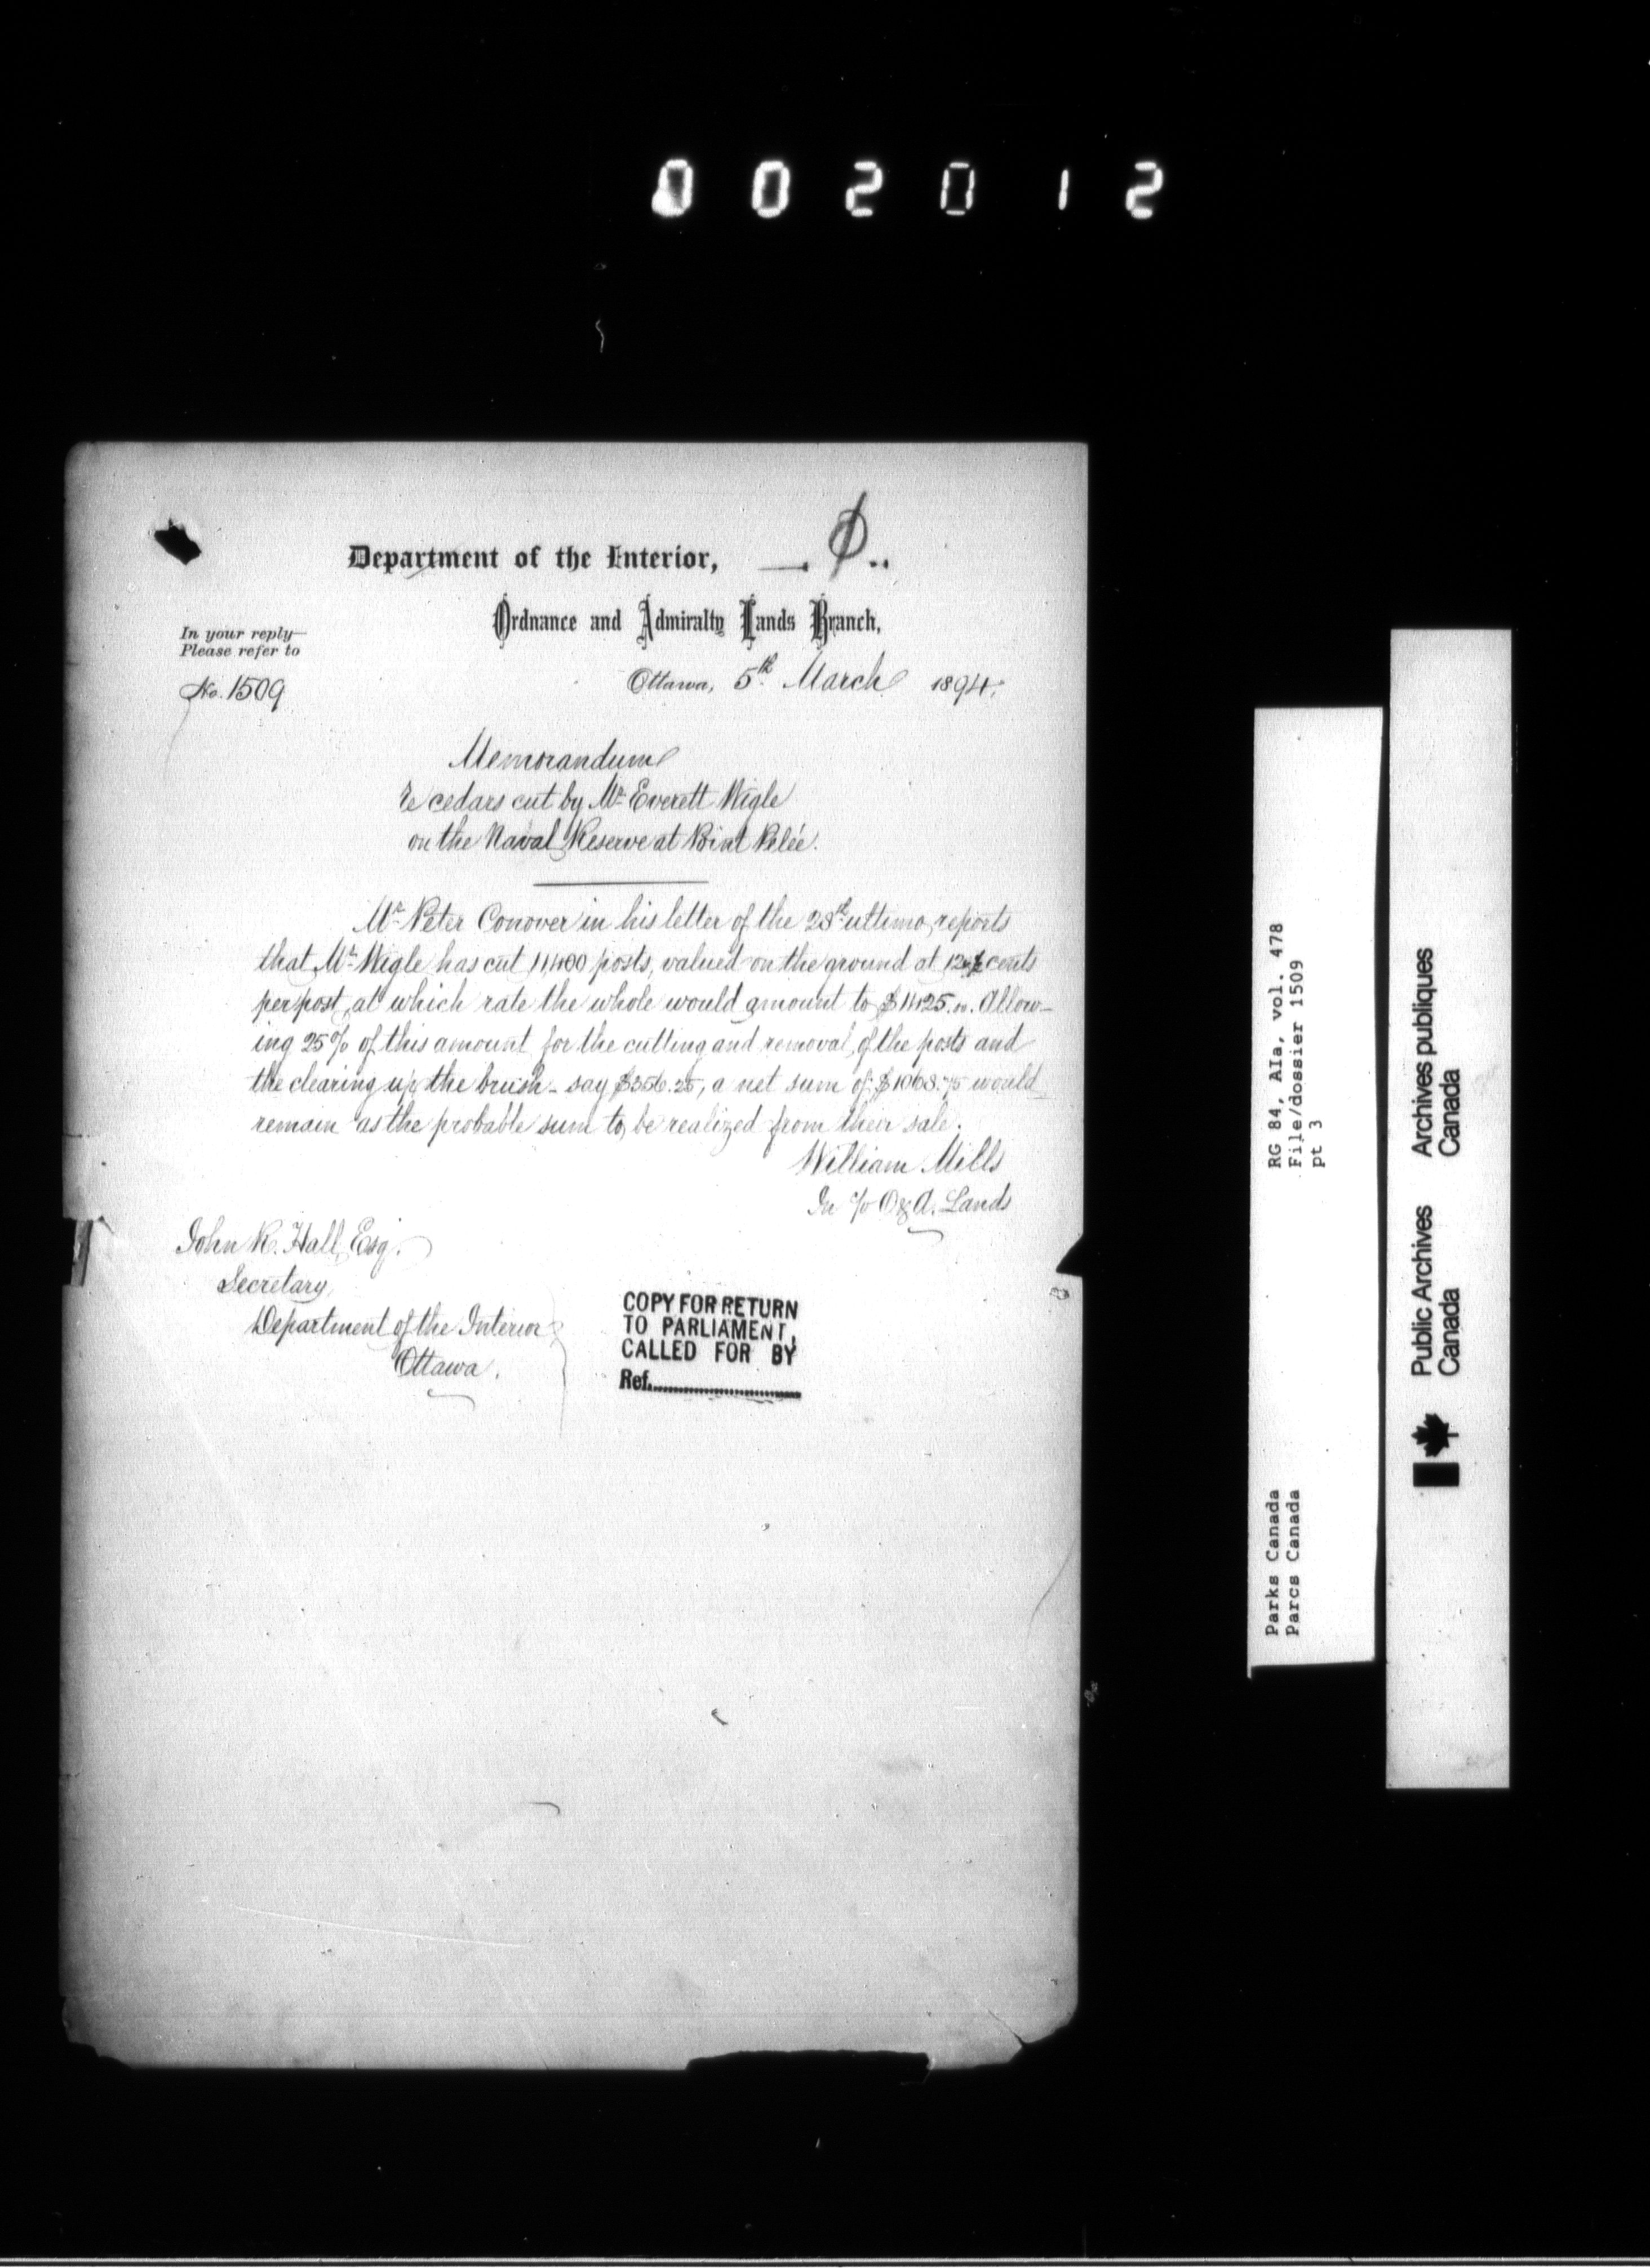 002012
Department of the Interior,
Ordnance and Admiralty Lands Branch,
In your reply
Please refer to
No. 1509
Ottawa, 5th March 1894.
Memorandum
re cedars cut by Mr. Everett Wigle
on the Naval Reserve at Point Pelée.
Mr. Peter Conover in his letter of the 28th ultimo, reports
that Mr. Wigle has cut 11,400 posts, valued on the ground at 12½ cents
per post, at which rate the whole would amount to $1425.00. Allow-
ing 25% of this amount for the cutting and removal of the posts and
the clearing up the brush - say $356.25, a net sum of $1068.75 would
remain as the probable sum to be realized from their sale.
William Mills
In c/o O & A. Lands
John R. Hall, Esq.
Secretary,
Department of the Interior
Ottawa.
COPY FOR RETURN
TO PARLIAMENT,
CALLED FOR BY
Ref.
RG 84, AIa, vol. 478
File/dossier 1509
pt 3
Parks Canada
Parcs Canada
Public Archives
Canada
Archives publiques
Canada